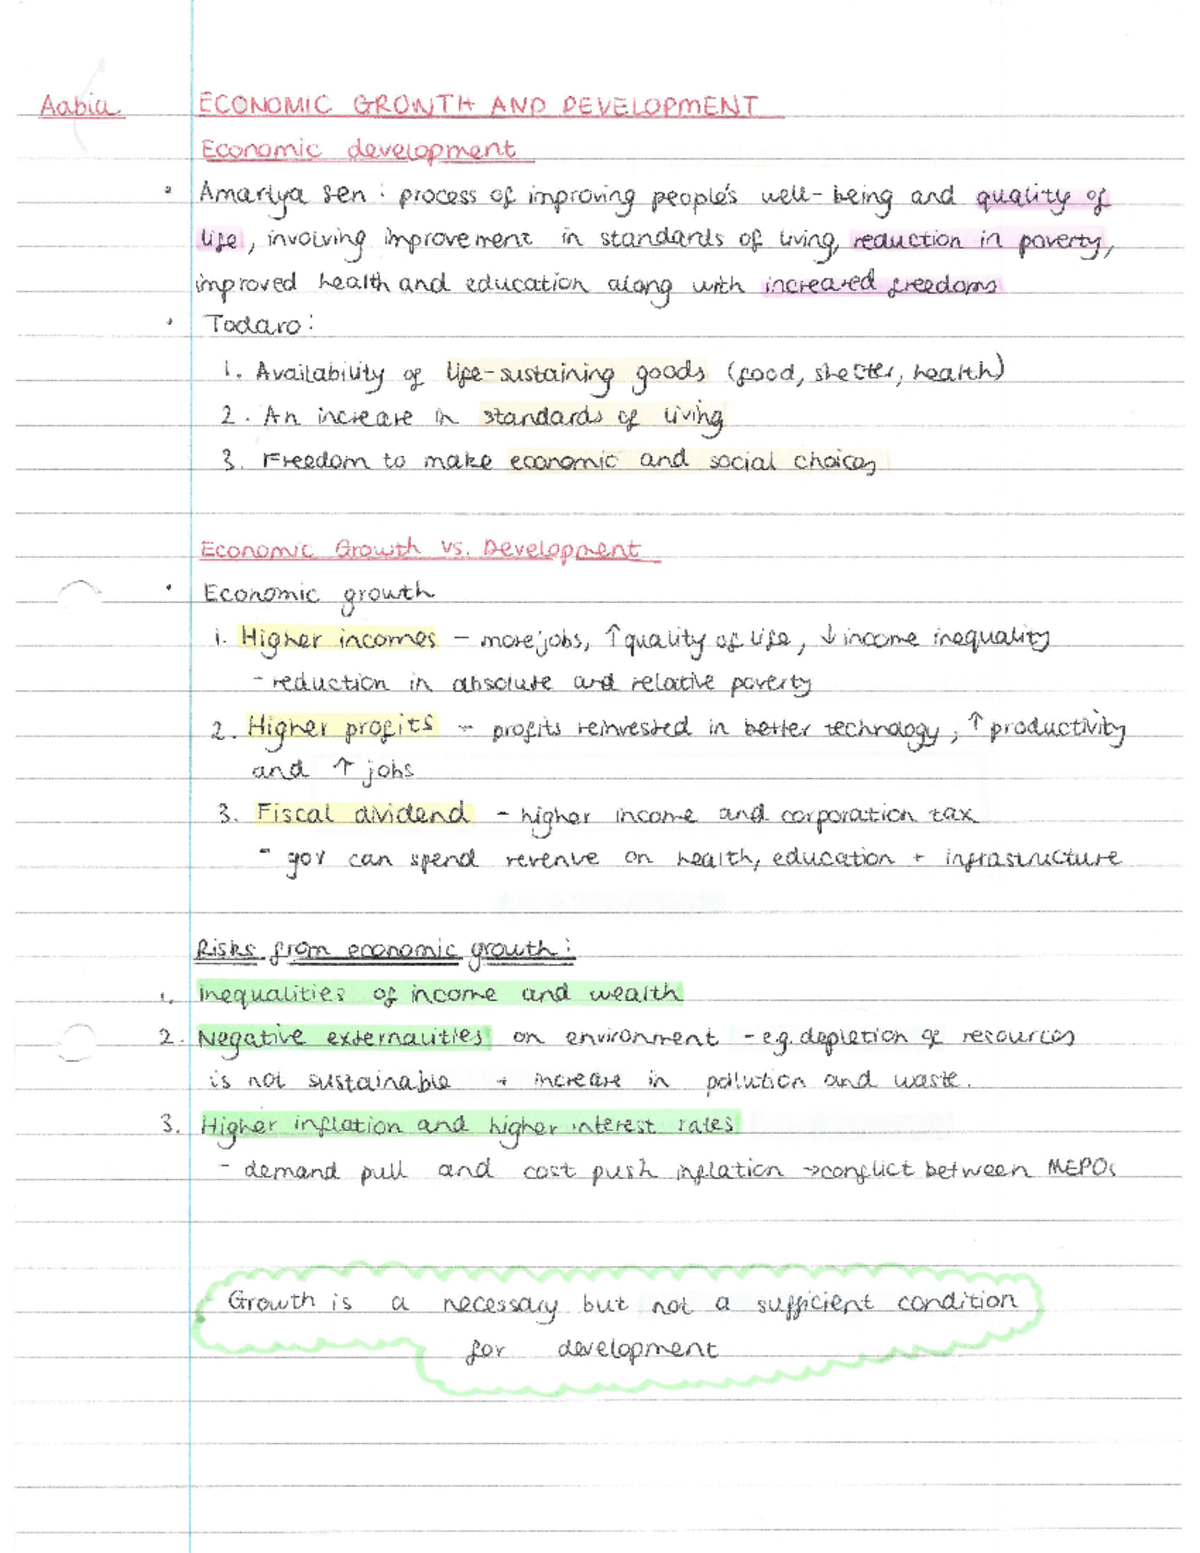 Aabia ECONOMIC GROWTH AND DEVELOPMENT
Economic development
• Amartya Sen : process of improving people's well-being and quality of
life, involving improvement in standards of living, reduction in poverty,
improved health and education along with increased freedoms
• Todaro:
1. Availability of life-sustaining goods (food, shelter, health)
2. An increase in standards of living
3. Freedom to make economic and social choices
Economic Growth vs. Development
• Economic growth
1. Higher incomes - more jobs, ↑quality of life, ↓income inequality
- reduction in absolute and relative poverty
2. Higher profits - profits reinvested in better technology, ↑ productivity
and ↑ jobs
3. Fiscal dividend - higher income and corporation tax
- gov can spend revenue on health, education + infrastructure
Risks from economic growth:
1. Inequalities of income and wealth
2. Negative externalities on environment - e.g. depletion of resources
is not sustainable + increase in pollution and waste.
3. Higher inflation and higher interest rates
- demand pull and cost push inflation →conflict between MEPOs
Growth is a necessary but not a sufficient condition
for development